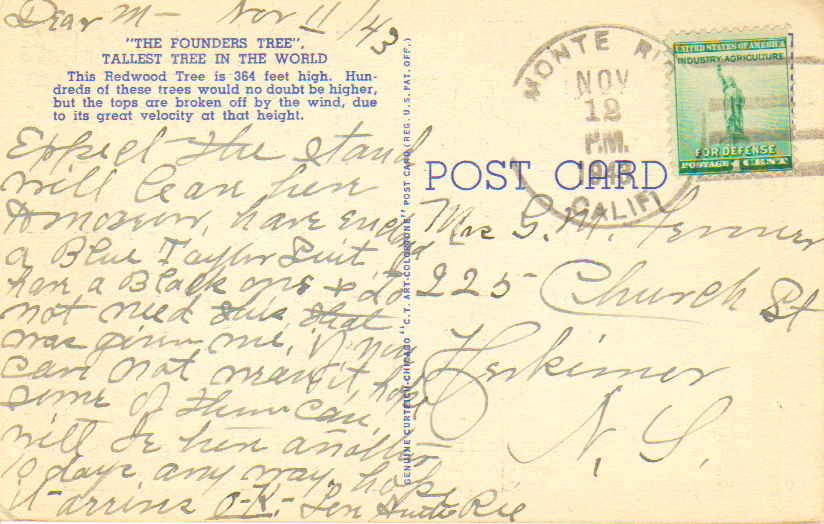 Dear M— Nov 11/43
"THE FOUNDERS TREE",
TALLEST TREE IN THE WORLD
This Redwood Tree is 364 feet high. Hun-
dreds of these trees would no doubt be higher,
but the tops are broken off by the wind, due
to its great velocity at that height.
Expect the stand
will lean here
tomorrow, have
a Blue Taylor Suit
have a Black one & do
not need this that
was given me, if
can not wear it,
some of them can,
will be here another
10 days any way, hope
it arrives O-K-
GENUINE CURTEICH-CHICAGO "C.T. ART-COLORTONE" POST CARD (REG. U.S. PAT. OFF.)
POST CARD
MONTE RIO
NOV
12
P.M.
CALIF.
UNITED STATES OF AMERICA
INDUSTRY AGRICULTURE
FOR DEFENSE
POSTAGE 1 CENT
Mrs G. M.
225 Church St
Herkimer
N. Y.